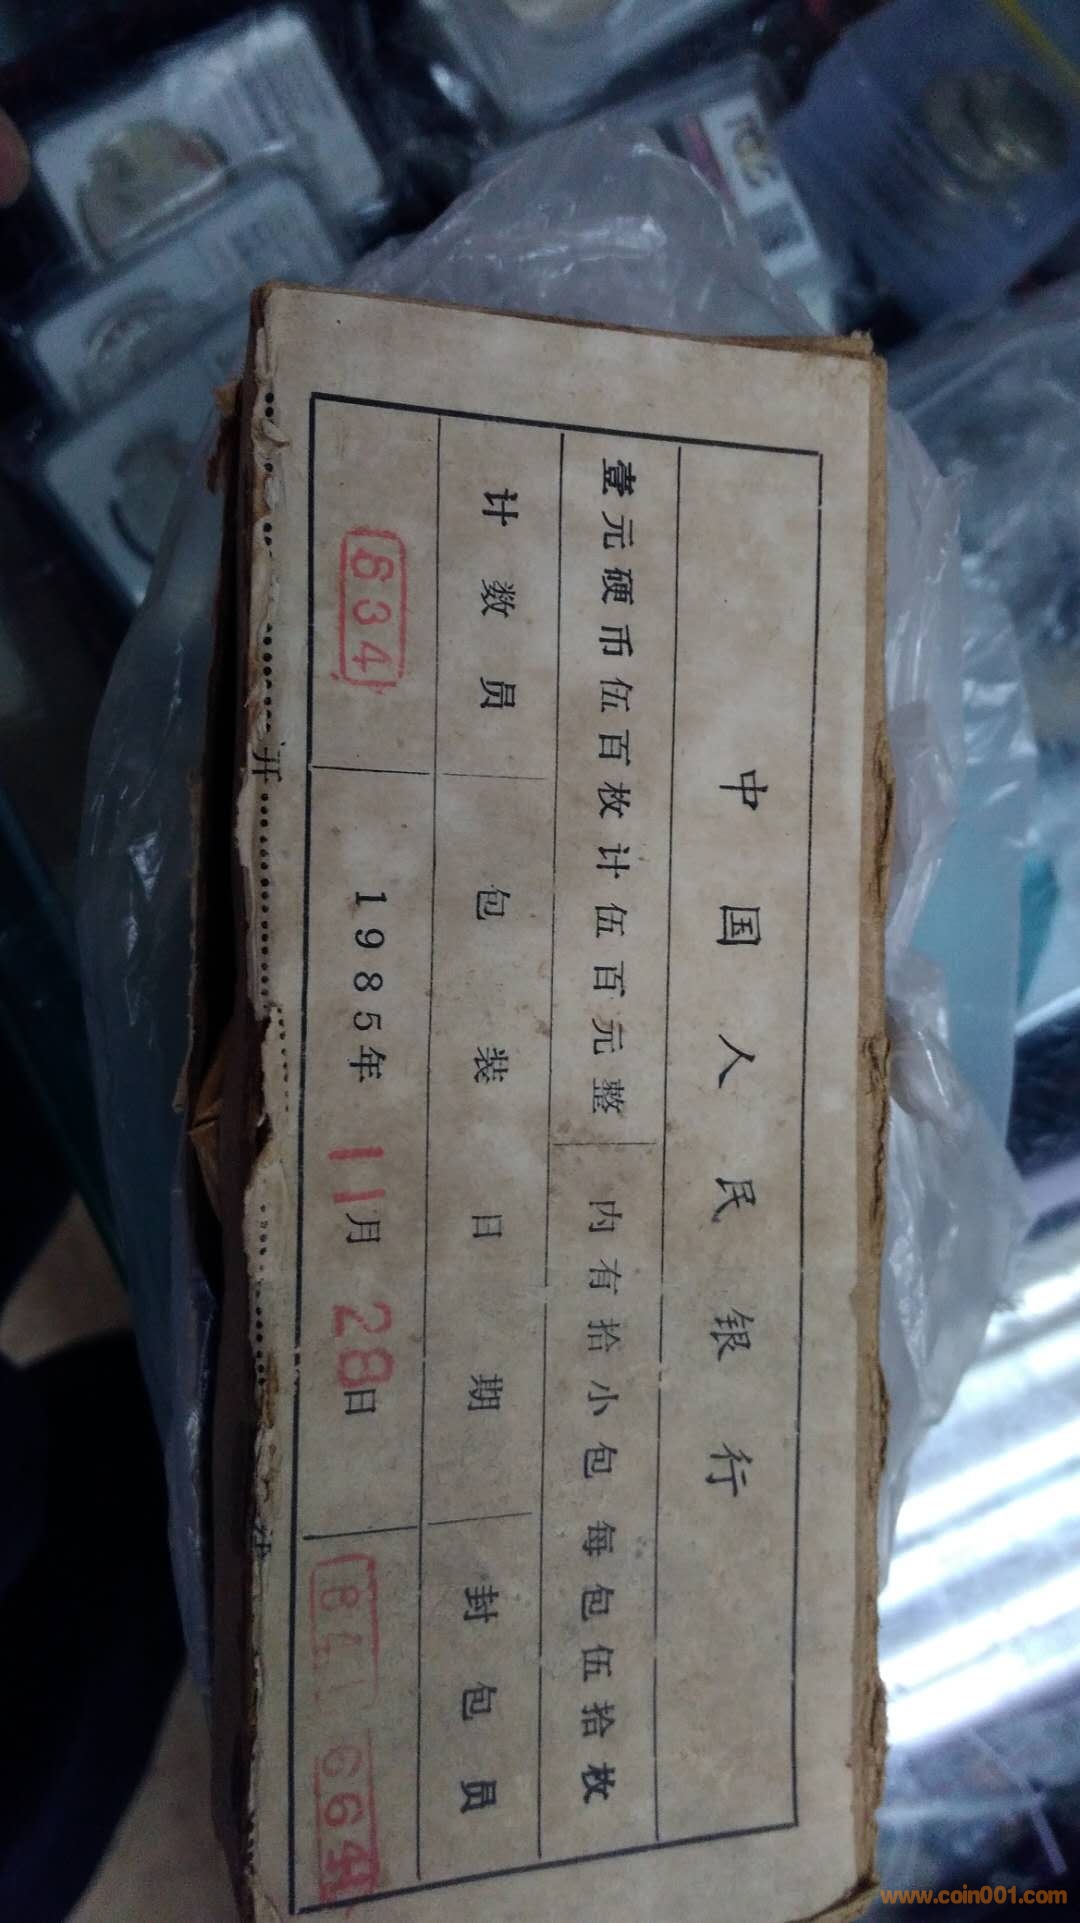 中国人民银行
壹元硬币伍百枚计伍百元整 内有拾小包每包伍拾枚
计数员 包装日期 封包员
634 1985年11月28日 841 664
开
www.coin001.com